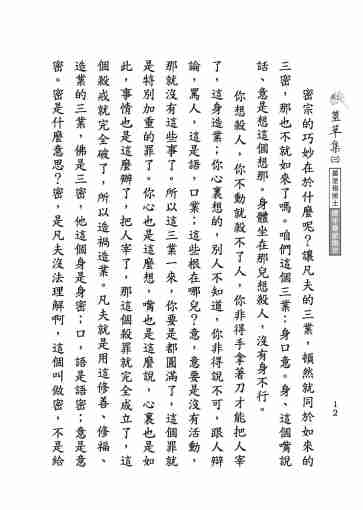 薑草集㈡
12
密宗的巧妙在於什麼呢？讓凡夫的三業，頓然就同於如來的
三密，那也不就如來了嗎。咱們這個三業：身口意。身、這個嘴說
話、意是想這個想那。身體坐在那兒想殺人，沒有身不行。
你想殺人，你不動就殺不了人，你非得手拿著刀才能把人宰
了，這身造業，你心裏想的，別人不知道，你非得說不可，跟人辯
論，罵人，這是語，口業；這些根在哪兒？意，意要是沒有活動，
那就沒有這些事了。所以這三業一來，你要是都圓滿了，這個罪就
是特別加重的罪了。你心也是這麼想，嘴也是這麼說，心裏也是如
此，事情也是這麼辦了，把人宰了，那這個殺罪就完全成立了，這
個殺戒就完全破了，所以造禍造業。凡夫就是用這修善、修福、
造業的三業，佛是三密，他這個身是身密；口，語是語密；意是意
密。密是什麼意思？密，是凡夫沒法理解啊，這個叫做密，不是給